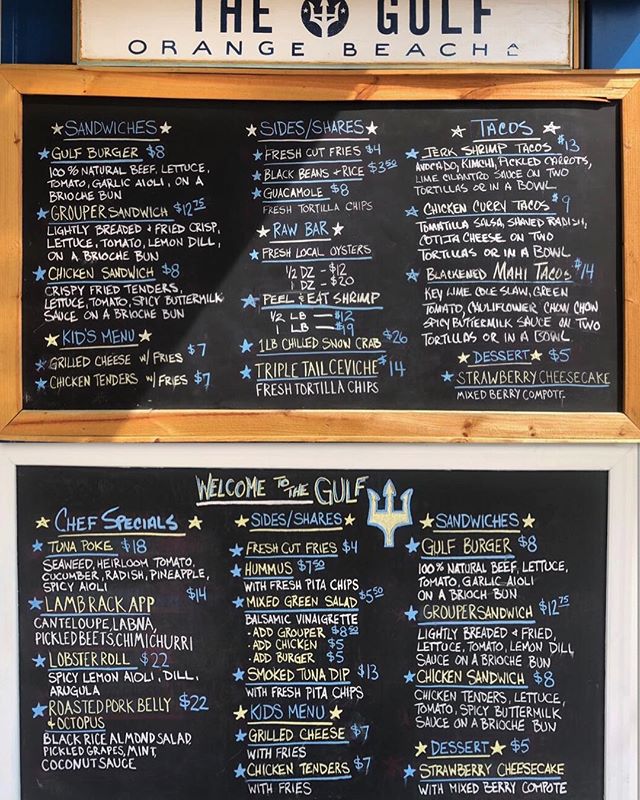 THE GULF
ORANGE BEACH AL
SANDWICHES
GULF BURGER $8
100% NATURAL BEEF, LETTUCE,
TOMATO, GARLIC AIOLI, ON A
BRIOCHE BUN
GROUPER SANDWICH $12.25
LIGHTLY BREADED & FRIED CRISP,
LETTUCE, TOMATO, LEMON DILL,
ON A BRIOCHE BUN
CHICKEN SANDWICH $8
CRISPY FRIED TENDERS,
LETTUCE, TOMATO, SPICY BUTTERMILK
SAUCE ON A BRIOCHE BUN
KID'S MENU
GRILLED CHEESE W/ FRIES $7
CHICKEN TENDERS W/ FRIES $7
SIDES/SHARES
FRESH CUT FRIES $4
BLACK BEANS & RICE $3.50
GUACAMOLE $8
FRESH TORTILLA CHIPS
RAW BAR
FRESH LOCAL OYSTERS
1/2 DZ - $12
1 DZ - $20
PEEL & EAT SHRIMP
1/2 LB - $12
1 LB - $19
1LB CHILLED SNOW CRAB $26
TRIPLE TAIL CEVICHE $14
FRESH TORTILLA CHIPS
TACOS
JERK SHRIMP TACOS $13
AVOCADO, KIMCHI, PICKLED CARROTS,
LIME CILANTRO SAUCE ON TWO
TORTILLAS OR IN A BOWL
CHICKEN CURRY TACOS $9
TOMATILLA SALSA, SHAVED RADISH,
COTIJA CHEESE ON TWO
TORTILLAS OR IN A BOWL
BLACKENED MAHI TACOS $14
KEY LIME COLE SLAW, GREEN
TOMATO, CAULIFLOWER CHOW CHOW
SPICY BUTTERMILK SAUCE ON TWO
TORTILLAS OR IN A BOWL
DESSERT $5
STRAWBERRY CHEESECAKE
MIXED BERRY COMPOTE
WELCOME TO THE GULF
CHEF SPECIALS
TUNA POKE $18
SEAWEED, HEIRLOOM TOMATO,
CUCUMBER, RADISH, PINEAPPLE,
SPICY AIOLI
LAMB RACK APP $14
CANTELOUPE, LABNA,
PICKLED BEETS, CHIMICHURRI
LOBSTER ROLL $22
SPICY LEMON AIOLI, DILL,
ARUGULA
ROASTED PORK BELLY $22
& OCTOPUS
BLACK RICE ALMOND SALAD,
PICKLED GRAPES, MINT,
COCONUT SAUCE
SIDES/SHARES
FRESH CUT FRIES $4
HUMMUS $7.50
WITH FRESH PITA CHIPS
MIXED GREEN SALAD $5.50
BALSAMIC VINAIGRETTE
- ADD GROUPER $8.50
- ADD CHICKEN $5
- ADD BURGER $5
SMOKED TUNA DIP $13
WITH FRESH PITA CHIPS
KIDS MENU
GRILLED CHEESE $7
WITH FRIES
CHICKEN TENDERS $7
WITH FRIES
SANDWICHES
GULF BURGER $8
100% NATURAL BEEF, LETTUCE,
TOMATO, GARLIC AIOLI
ON A BRIOCH BUN
GROUPER SANDWICH $12.75
LIGHTLY BREADED & FRIED,
LETTUCE, TOMATO, LEMON DILL
SAUCE ON A BRIOCHE BUN
CHICKEN SANDWICH $8
CHICKEN TENDERS, LETTUCE,
TOMATO, SPICY BUTTERMILK
SAUCE ON A BRIOCHE BUN
DESSERT $5
STRAWBERRY CHEESECAKE
WITH MIXED BERRY COMPOTE